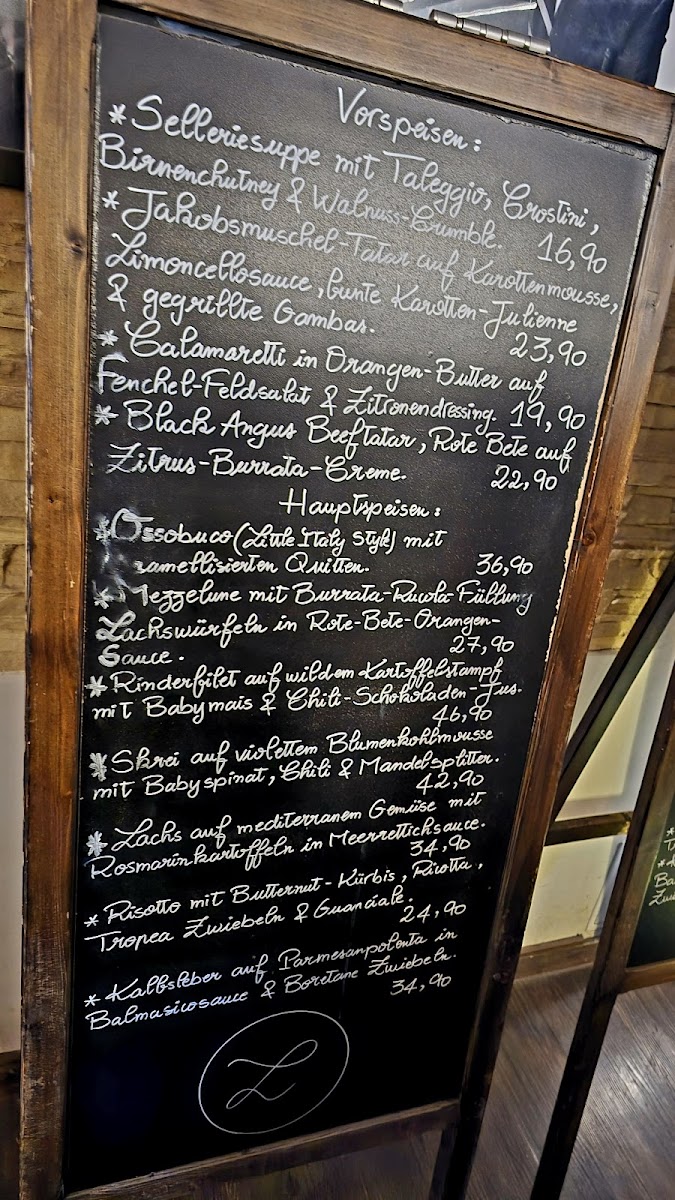 Vorspeisen:
* Selleriesuppe mit Taleggio, Crostini,
Birnenchutney & Walnuss-Crumble. 16,90
* Jakobsmuschel-Tatar auf Karottenmousse,
Limoncellosauce, bunte Karotten-Julienne
& gegrillte Gambas. 23,90
* Calamaretti in Orangen-Butter auf
Fenchel-Feldsalat & Zitronendressing. 19,90
* Black Angus Beeftatar, Rote Bete auf
Zitrus-Burrata-Creme. 22,90
Hauptspeisen:
* Ossobuco (Little Italy Style) mit
ramellisierten Quitten. 36,90
* Mezzelune mit Burrata-Rucola-Füllung
Lachswürfeln in Rote-Bete-Orangen-
Sauce. 27,90
* Rinderfilet auf wildem Kartoffelstampf
mit Babymais & Chili-Schokoladen-Jus.
46,90
* Skrei auf violettem Blumenkohlmousse
mit Babyspinat, Chili & Mandelsplitter.
42,90
* Lachs auf mediterranem Gemüse mit
Rosmarinkartoffeln in Meerrettichsauce.
34,90
* Risotto mit Butternut-Kürbis, Ricotta,
Tropea Zwiebeln & Guanciale.
24,90
* Kalbsleber auf Parmesanpolenta in
Balmasicosauce & Boretane Zwiebeln.
34,90
L